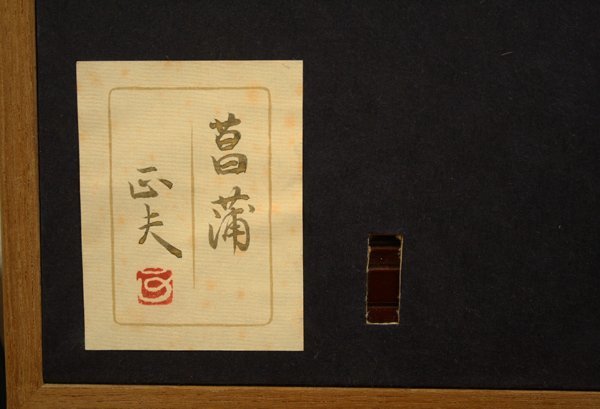 菖蒲
正夫